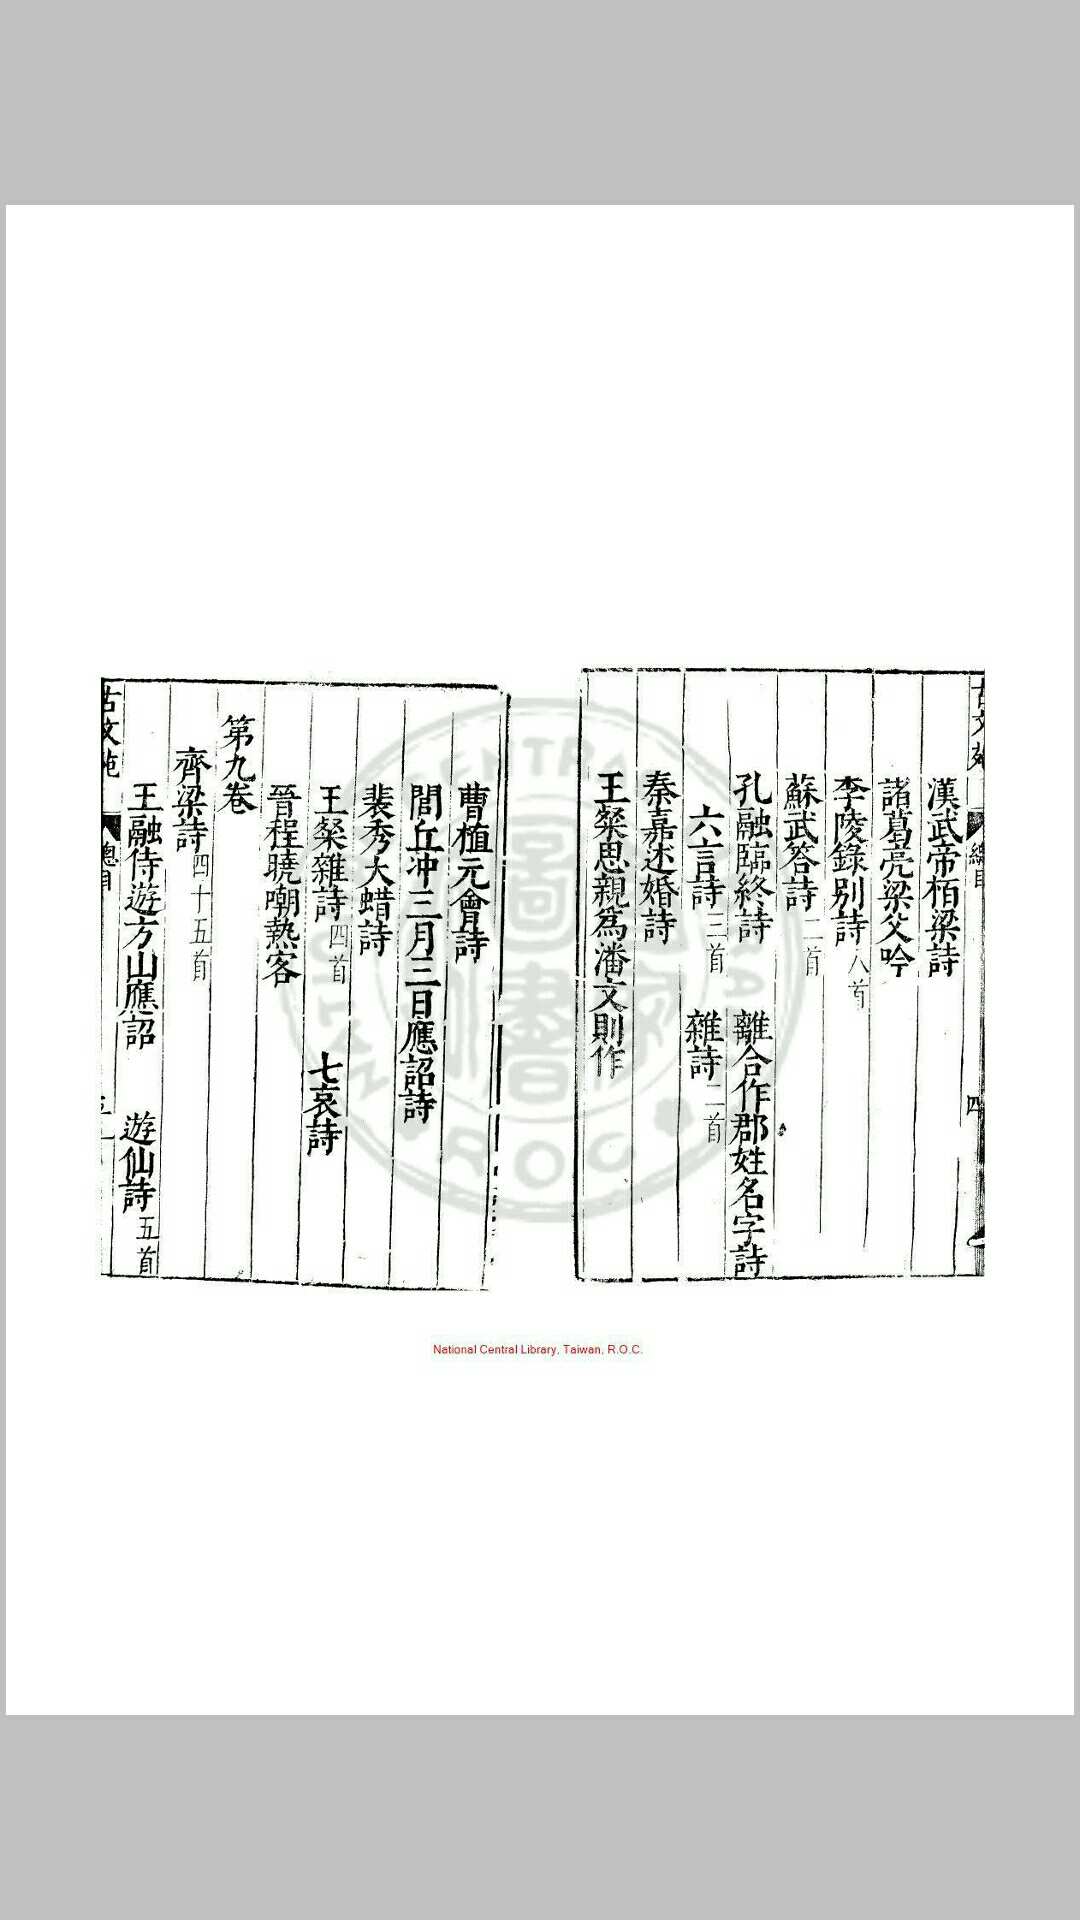 古文苑 總目 四
漢武帝栢梁詩
諸葛亮梁父吟
李陵錄別詩八首
蘇武答詩二首
孔融臨終詩 離合作郡姓名字詩
六言詩三首 雜詩二首
秦嘉述婚詩
王粲思親為潘文則作
曹植元會詩
閭丘冲三月三日應詔詩
裴秀大蜡詩
王粲雜詩四首 七哀詩
晉程曉嘲熱客
第九卷
齊梁詩四十五首
王融侍遊方山應詔 遊仙詩五首
古文苑 總目
National Central Library, Taiwan, R.O.C.